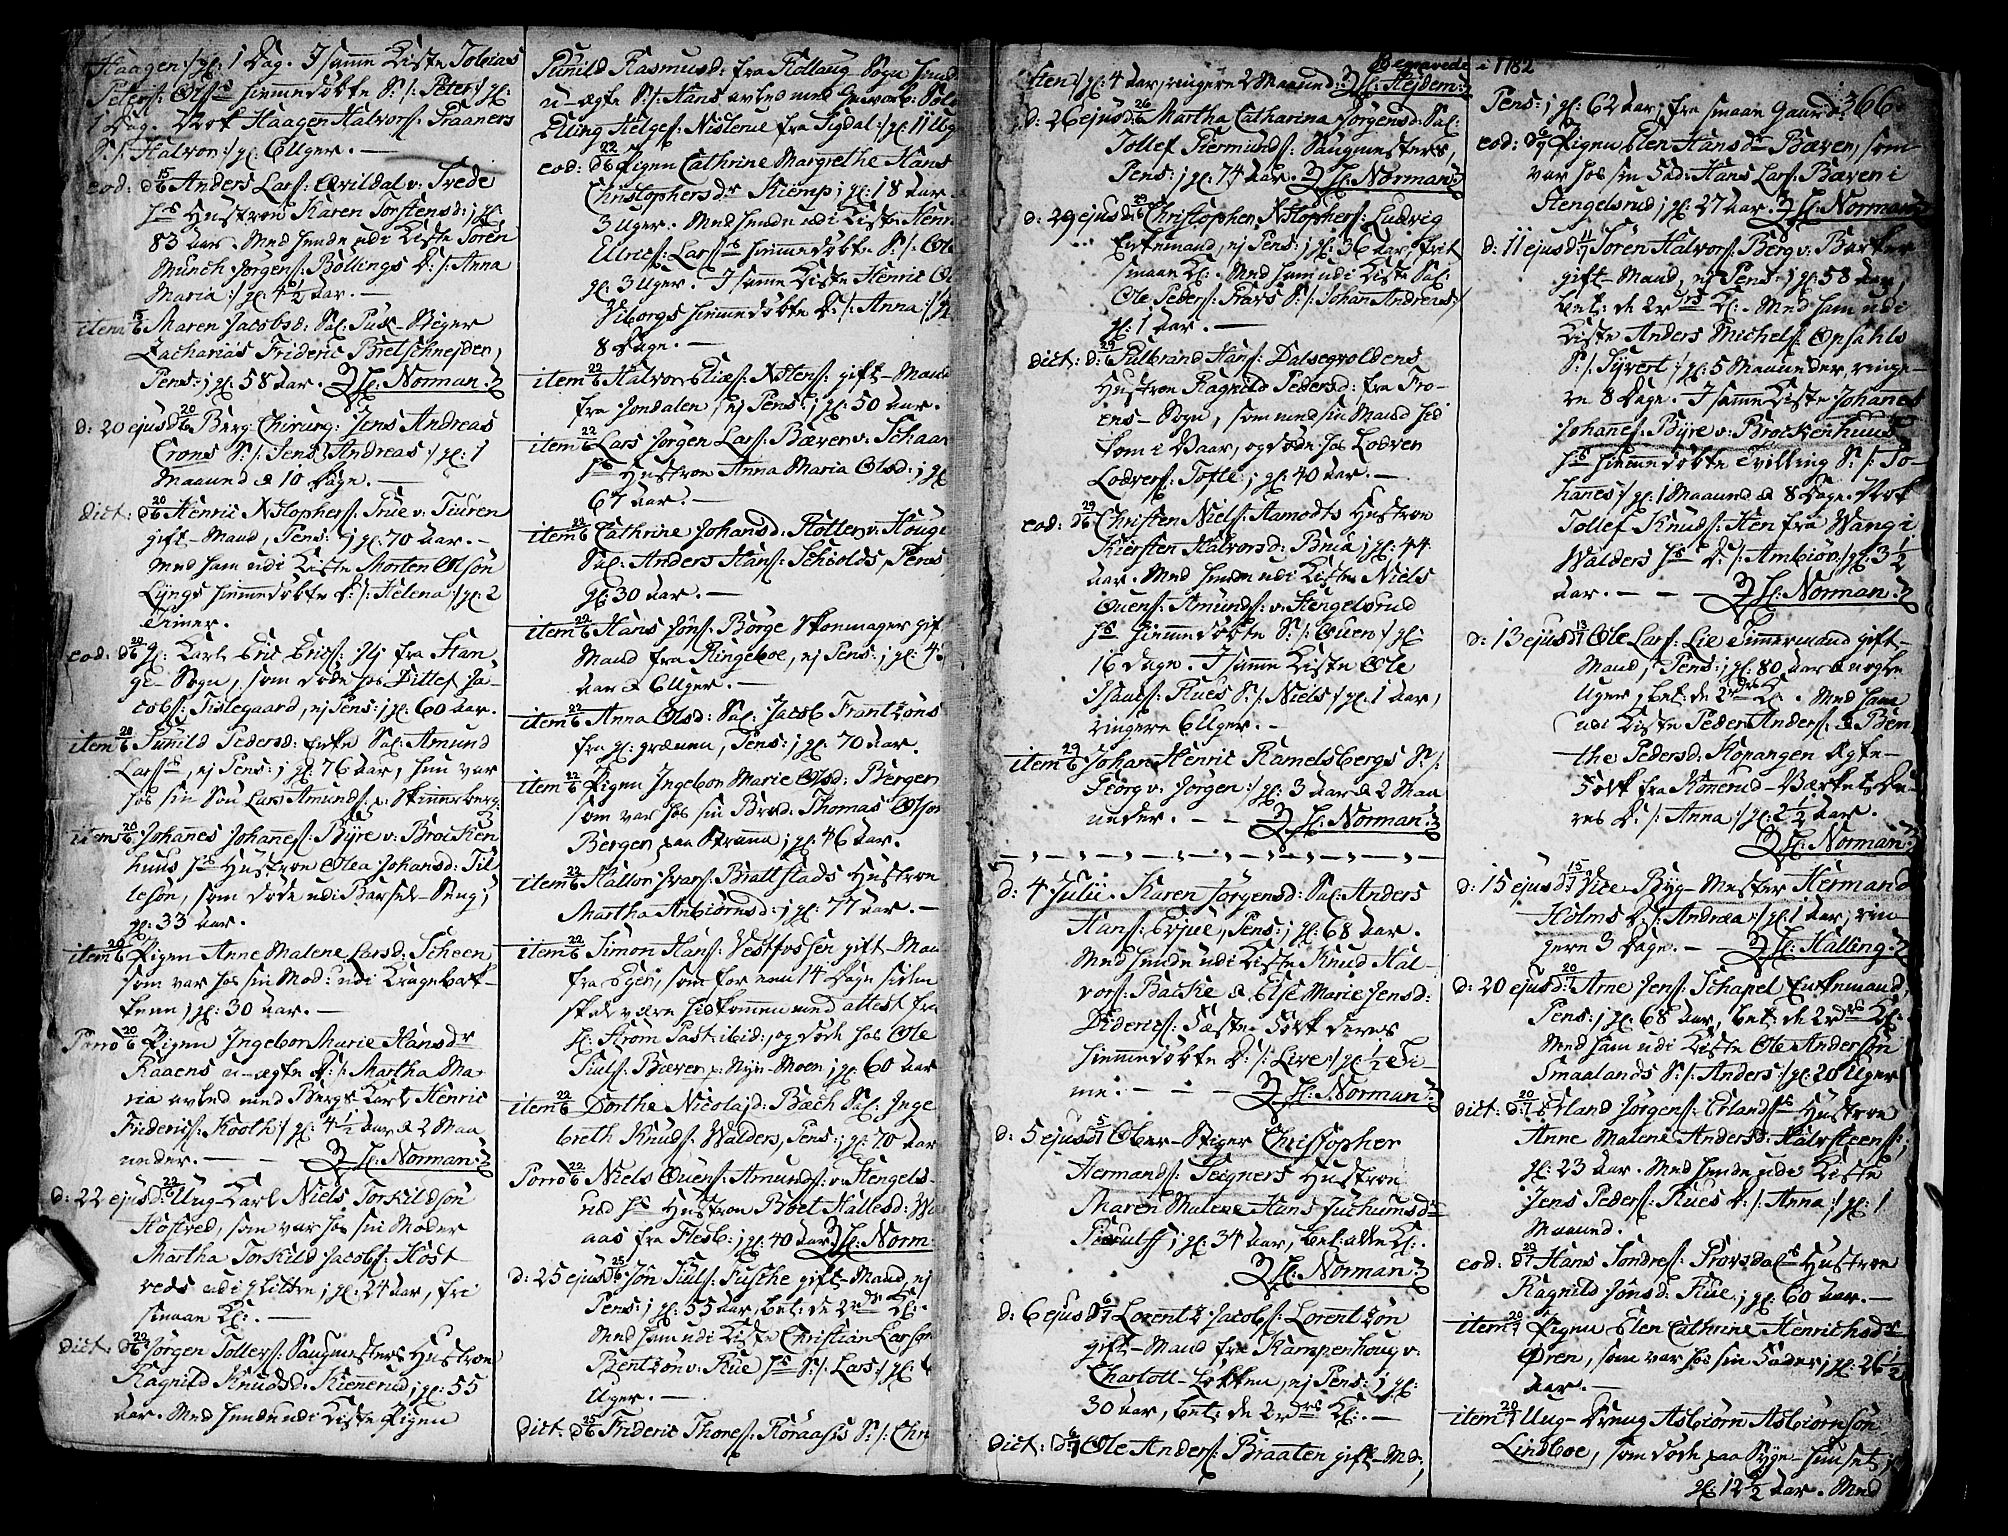 Haagen /: gl: 1 Dag. I samme Kiste Tobias
Peters: Ols hiemmedøbte S: /: Peter /: gl:
1 Dag. Nok Haagen Halvors: Praaners
S: /: Halvor /: gl: 6 Uger. —
eod: d 15/6 Anders Lars: Qvildal v: Trede
hs Hustroe Karen Torstensd: gl:
83 aar. Med hende udi Kiste Søren
Munch Jørgens: Bøllings D: /: Anna
Maria /: gl: 4½ aar. —
item 15/6 Maren Jacobsd: Sal: Stiger
Zacharias Frideric Bretschneider,
Pens: gl: 58 aar. H: Norman.
d: 20 ejusd 20/6 Berg Chirurg: Jens Andreas
Crons S: /: Jens Andreas /: gl: 1
Maaned & 10 Dage. —
dict: d 20/6 Henric Xstophers: True v: Tuuren
gift-Mand, Pens: gl: 70 aar. —
Med ham udi Kiste Morten Olsøn
Lyngs hiemmedøbte D: /: Helena /: gl: 2
Timer.
eod: d 20/6 Karl Eric Erics: fra Han
ge-Sogn, som døde hos Ditlef Ja-
cobs: Tislegaard, ej Pens: gl: 60 aar.
item 20/6 Gunild Pedersd: Enke Sal: Amund
Lars, ej Pens: gl: 76 aar, hun var
hos sin Søn Lars Amunds: Skinnerberg
item 20/6 Johannes Johanes: Byre v: Brocken
huus hs Hustroe Olea Johansd: Til
lesøn, som døde udi Barsel-Seng;
gl: 33 aar.
item 20/6 Pigen Anne Malene Larsd: Scheen
som var hos sin Mod: udi Krageback-
ken gl: 30 aar. —
Porro 20/6 Pigen Ingebor Marie Hansdr
Raaens u-ægte D: /: Martha Ma-
ria avled med Bergs Karl Henric
Friderics: Kooth /: gl: 4½ aar & 2 Maa
neder. — H: Norman.
d: 22 ejusd 22/6 Ung-Karl Niels Torkildsøn
Høstred, som var hos sin Moder
Martha Torkild Jacobs: Høst
reds udi gl: 24 aar, fri
smaae Kl:. —
dict: d 22/6 Jørgen Tollefs: Saugmesters Hustroe
Ragnild Knudsd. Kiennerud gl: 55
aar. Med hende udi Kiste Pigen
Gunild Rasmusd: fra Hollaug Sogn hende
u-ægte S: /: Hans avled med
Elling Helges: Nislerue fra Sigdal /: gl: 11 Uger
eod: d 22/6 Pigen Cathrine Margrethe Hans
Christophersdr Kiemp gl: 18 aar &
3 Uger. Med hende udi Kiste Henri
Ulrics: Lars hiemmedøbte S: /: Ole
gl: 3 Uger. I samme Kiste Henric
Viborgs hiemmedøbte D: /: Anna /: gl:
8 Dage. —
item 22/6 Halvor Elies: Xstens: gift-Mand
fra Jondalen, ej Pens: gl: 50 aar.
item 22/6 Lars Jørgen Lars: Bæver v: Schaar
hs Hustroe Anna Maria Olsd: gl:
67 aar. —
item 22/6 Cathrine Johansd: Holler v: Houge
Sal: Anders Hans: Schiolds, Pens:
gl: 30 aar. —
item 22/6 Hans Jøns: Børge Skomager gift
Mand fra Ringeboe, ej Pens: gl: 4
aar & 6 Uger. —
item 22/6 Anna Olsd: Sal: Jacob Frantzøns
fra gl: grænen, Pens: gl: 70 aar.
item 22/6 Pigen Ingebor Marie Olsd: Bergen
som var hos sin Brod: Thomas Olsøn
Bergen paa Strømmen gl: 46 aar.
item 22/6 Hallor Ivars: Brattstads Hustroe
Martha Anbiørnsd: gl: 77 aar. —
item 22/6 Simon Hans: Vestfossen gift-Man
fra Eger, som for nem 14 Dage siden
skal være hidkommen med attest fra
H: Strøm Past: ibid:, og døde hos Ole
Juuls: Bæver p: Nye-Moen gl: 60 aar
item 22/6 Dorthe Nicolajd: Bach Sal: Inge
breth Knuds: Walders, Pens: gl: 70 aar
Porro 22/6 Niels Ouens: Amunds: v: Hengels-
rud hs Hustroe Boel Hallesd:
aas fra Flesb: gl: 40 aar H: Norm
d: 25 ejusd 25/6 Jøn Juuls: Fusche gift-Mand, ej
Pens: gl: 55 aar, bet: de 2rdes Kl:.
Med ham udi Kiste Christian Larsøn
Bentzøn v: Rue hs S: /: Lars /: gl: 6
Uger. —
dict: d 25/6 Frideric Thores: Roraases S: /: Chri
Begravede i 1782
sten /: gl: 4 aar, ringere 2 Maaned. H: Hejdem.
d: 26 ejusd 26/6 Martha Catharina Jørgensd: Sal:
Tollef Giermunds: Saugmesters,
Pens: gl: 74 aar. H: Norman.
d: 29 ejusd 29/6 Christopher Xstophers: Ludvig
Enkemand, ej Pens: gl: 36 aar, frit
smaae Kl:. Med ham udi Kiste Sal:
Ole Peders: Praes S: /: Johan Andreas /:
gl: 1 aar. —
dict: d: 29/6 Gulbrand Hans: Dalsegvoldens
Hustroe Ragnild Pedersd: fra Fro-
ens-Sogn, som med sin Mand hid
kom i Vaar, og døde hos Lodver
Lodvers: Tofle gl: 40 aar. —
eod: d 29/6 Christen Niels: Aamodts Hustroe
Kiersten Halvorsd: Brua gl: 44
aar. Med hende udi Kiste Niels
Ouens: Amunds: v: Hengelsrud
hs hiemmedøbte S: /: Ouen /: gl:
16 Dage. I samme Kiste Ole
Isaacs: Rues S: /: Niels /: gl: 1 aar,
ringere 6 Uger. —
item 29/6 Johan Henric Ramelsbergs S: /:
Georg v: Jørgen /: gl: 3 aar & 2 Maa
neder. — H: Norman.
d: 4 Julii. Karen Jørgensd: Sal: Anders
Hans: Erjue, Pens: gl: 68 aar.
Med hende udi Kiste Knud Hal-
vors: Backe & Else Marie Jensd:
Diderics: Fæste-Folk deres
hiemmedøbte D: /: Live /: gl: ½ Ti-
me. — H: Norman.
d: 5 ejusd 5/7 Ober-Stiger Christopher
Hermands: Seigners Hustroe
Maren Malene Hans Juchumsdr
Gieulff gl: 34 aar, bet: alle Kl:.
H: Norman.
d: 6 ejusd 6/7 Lorentz Jacobs: Lorentzøn
gift-Mand fra Kampenhoug v:
Charlott-Løkken, ej Pens: gl:
30 aar, bet: de 2rdes Kl:. —
dict: d 6/7 Ole Anders: Braaten gift-Md:,
366.
Pens: gl: 62 aar, fra smaae Gaard.
eod: d 6/7 Pigen Elen Hansdr Bæver, som
var hos sin Fad: Hans Lars: Bæver i
Hengelsrud gl: 27 aar. H: Norman.
d: 11 ejusd 11/7 Søren Halvors: Berg v: Barker
gift-Mand, ej Pens: gl: 58 aar,
bet: de 2rdes Kl:. Med ham udi
Kiste Anders Michels: Opsahls
S: /: Syvert /: gl: 5 Maaneder, ringe-
re 8 Dage. I samme Kiste Johanes
Johanes: Byre v: Brockenhuus
hs hiemmedøbte Tvilling S: /: Jo-
hanes /: gl: 1 Maaned & 8 Dage. Nok
Tollef Knuds: Hen fra Wang i
Walders hs D: /: Ambior /: gl: 3½
aar. — H: Norman.
d: 13 ejusd 13/7 Ole Lars: Lie Timmermand gift-
Mand, Pens: gl: 80 aar & nogle
Uger, bet: de 2rdes Kl:. Med ham
udi Kiste Peder Anders: & Ben
the Pedersd: Kopangen ægte-
Folk fra Konerud-Værket De-
res D: /: Anna /: gl: 2½ aar.
H: Norman.
d: 15 ejusd 15/7 Vice-Byg-Mester Hermand
Holms D: /: Andrea /: gl: 1 aar, rin-
gere 3 Dage. — H: Halling.
d: 20 ejusd 20/7 Arne Jens: Schapel Enkemand,
Pens: gl: 68 aar, bet: de 2rdes Kl:.
Med ham udi Kiste Ole Andersøn
Smaalands S: /: Anders /: gl: 20 Uger
dict: d: 20/7 Erland Jørgens: Erlands Hustroe
Anne Malene Andersd: Halvsteens:,
gl: 23 aar. Med hende udi Kiste
Jens Peders: Rues D: /: Anna /: gl: 1
Maaned.
eod: d 20/7 Hans Sondres: Provsdals Hustroe
Ragnild Jønsd: Rue, gl: 60 aar. —
item 20/7 Pigen Elen Cathrine Henrichsdr
Øren, som var hos sin Fader gl: 26½
aar. —
item 20/7 Ung-Dreng Asbiørn Asbiørnsøn
Lindboe, som døde paa Syge-Huuset
gl: 12½ aar. Med